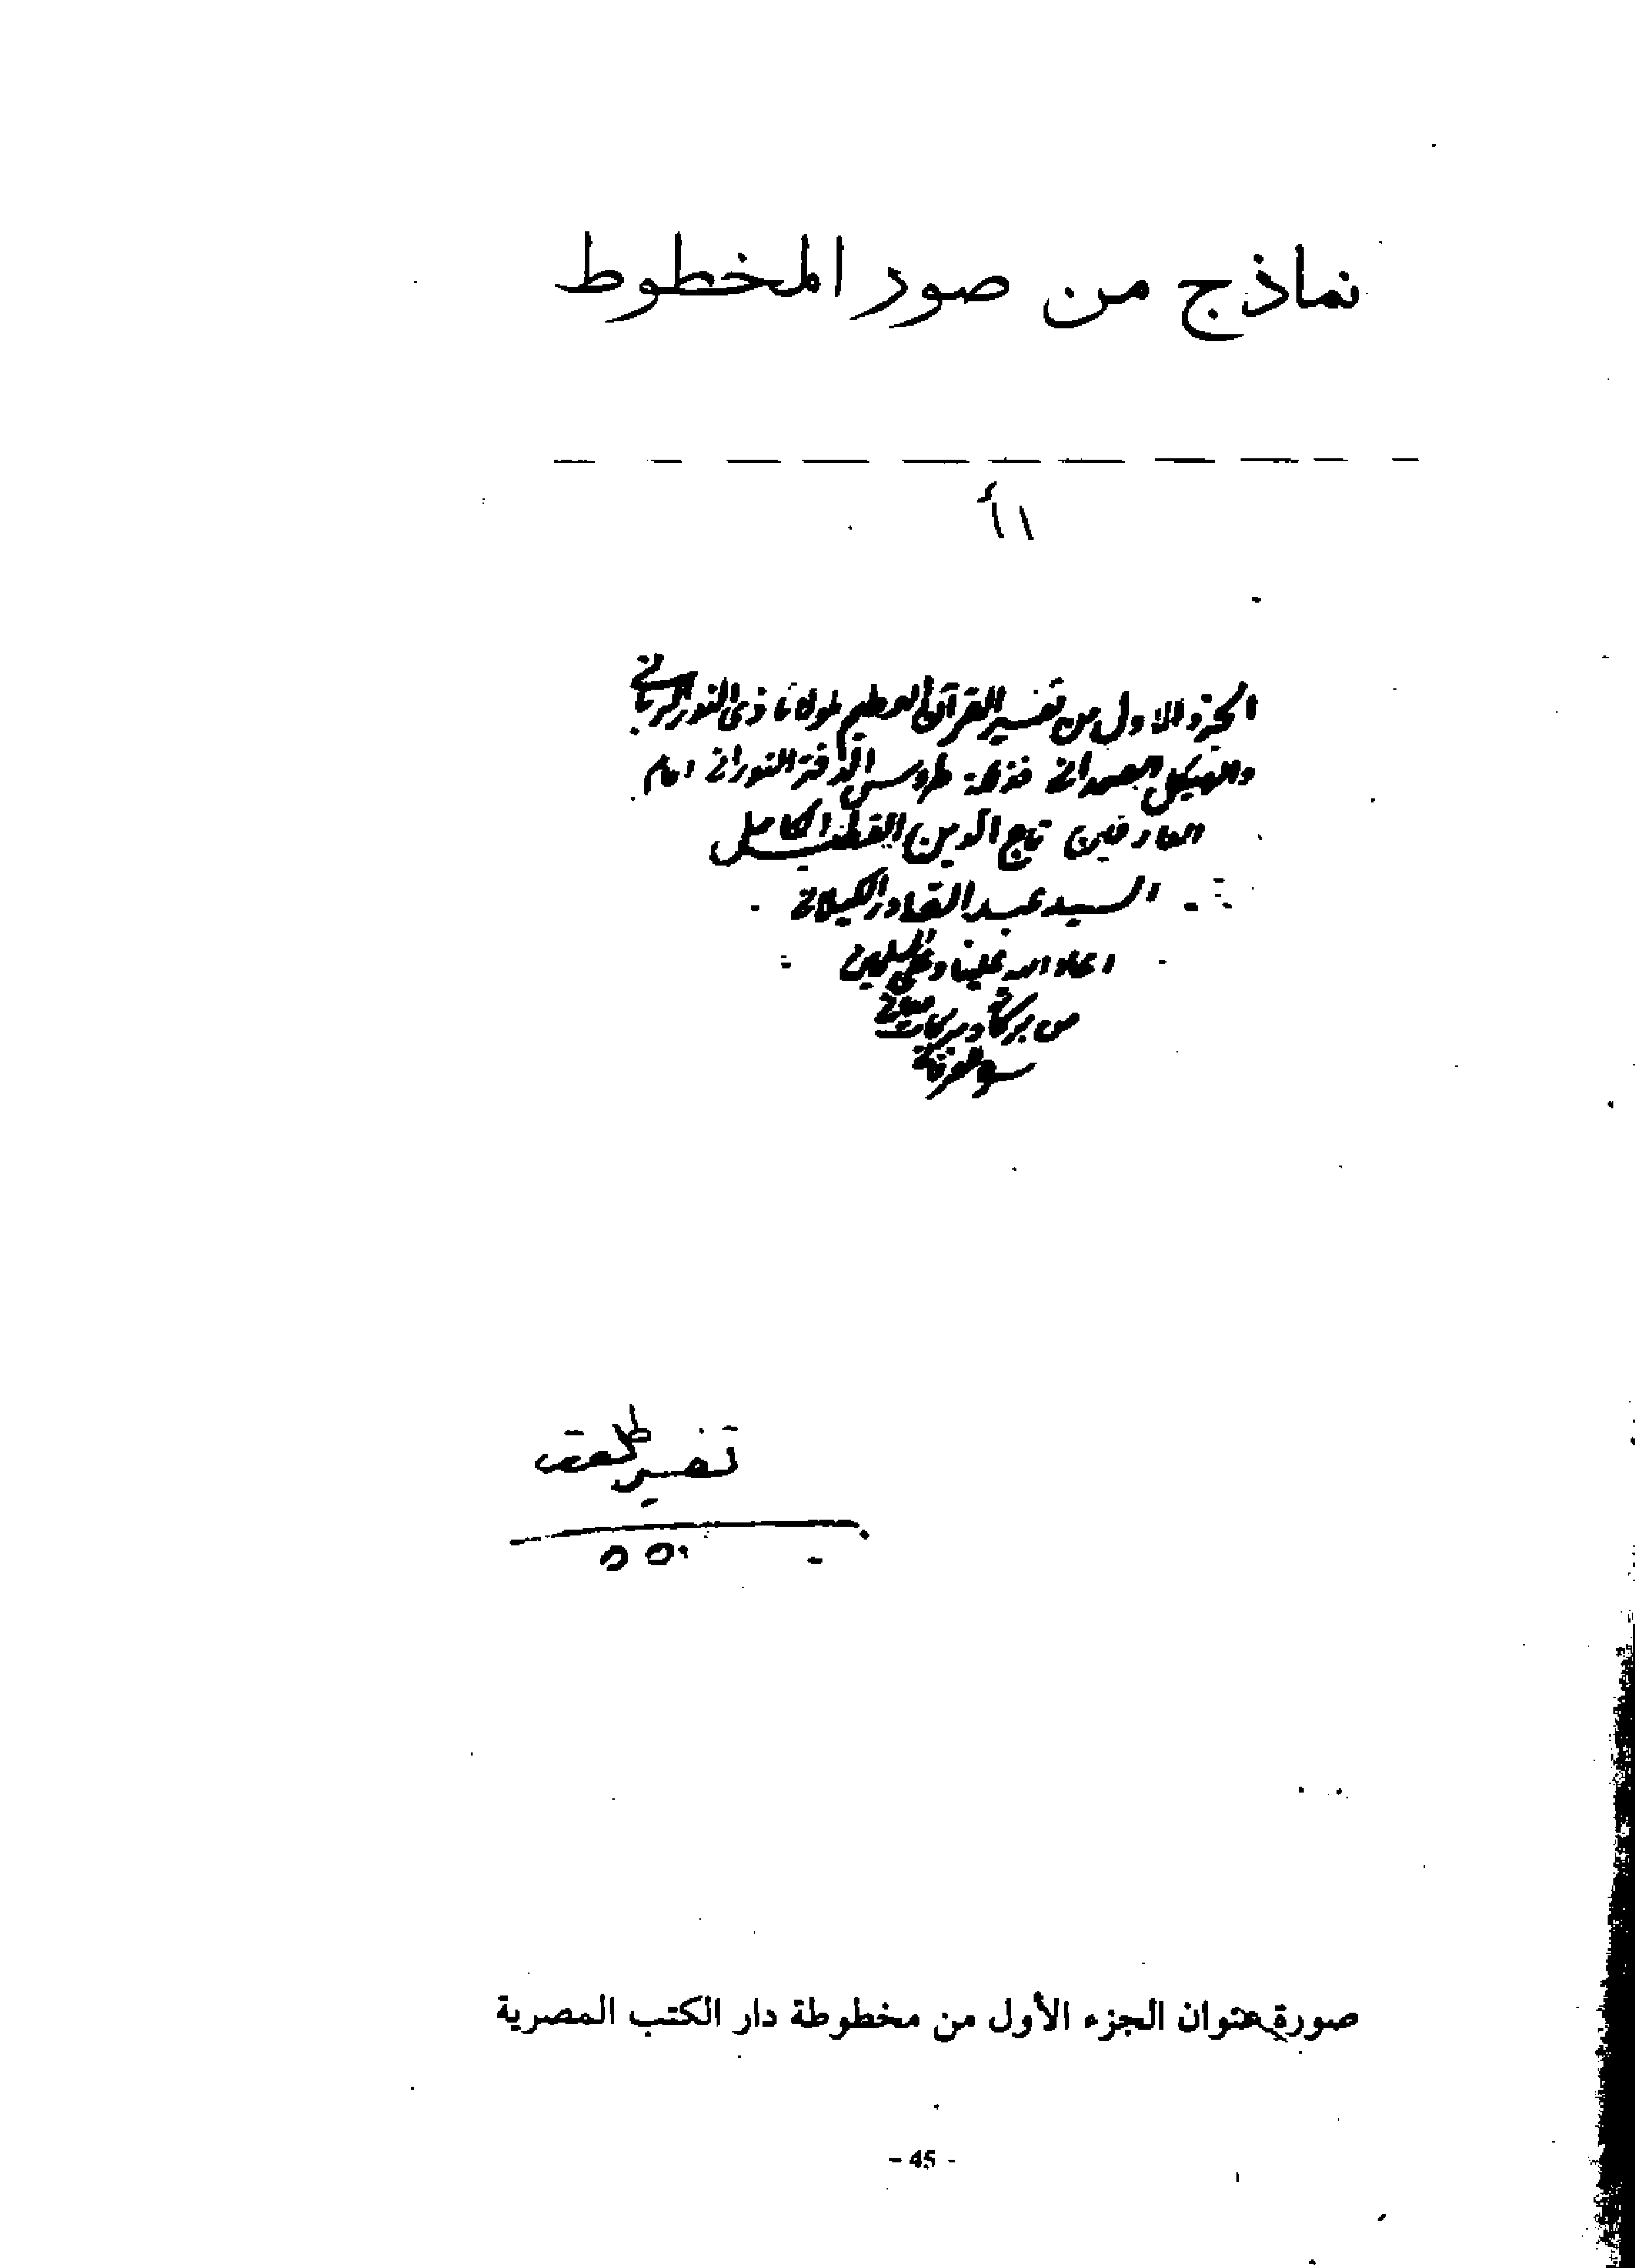 نماذج من صور المخطوط
١ أ
الجزو الاول من تفسير القرآن العظيم لمولانا ذى النور الربانى
والهيكل الصمدانى طروس الدفتر النورانى امام
العارفين تاج الدين القطب الكامل
السيد عبد القادر الكيلانى
اعاد الله علينا وعلى المسلمين
من بركاته
تفسير طلعت
٥٥٠
صورة عنوان الجزء الأول من مخطوطة دار الكتب المصرية
- 45 -